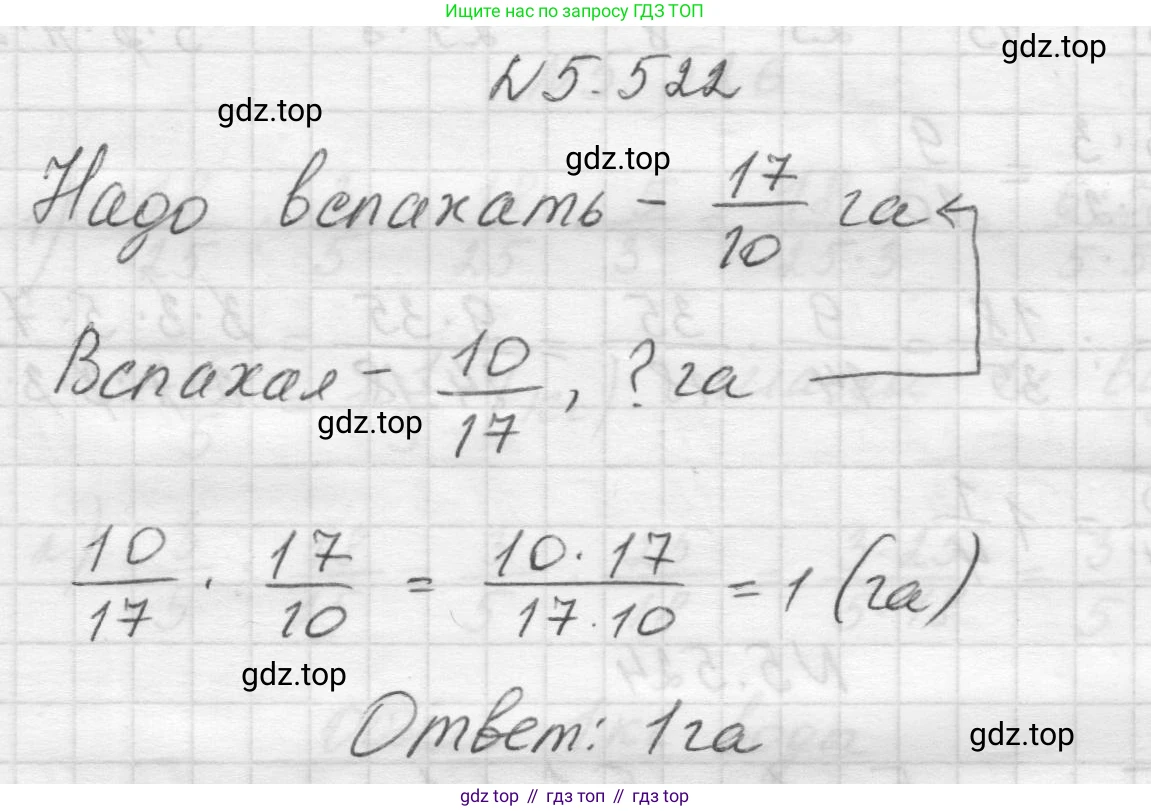 Ищите нас по запросу ГДЗ ТОП
gdz.top
N 5.522
gdz.top
gdz.top
Надо вспахать - 17/10 га
Вспахал - 10/17, ? га
gdz.top
10/17 · 17/10 = 10·17/17·10 = 1 (га)
gdz.top
Ответ: 1 га
gdz.top
gdz top // гдз топ // gdz top